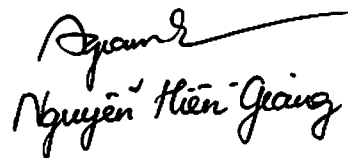 Nguyễn Hiền Giang